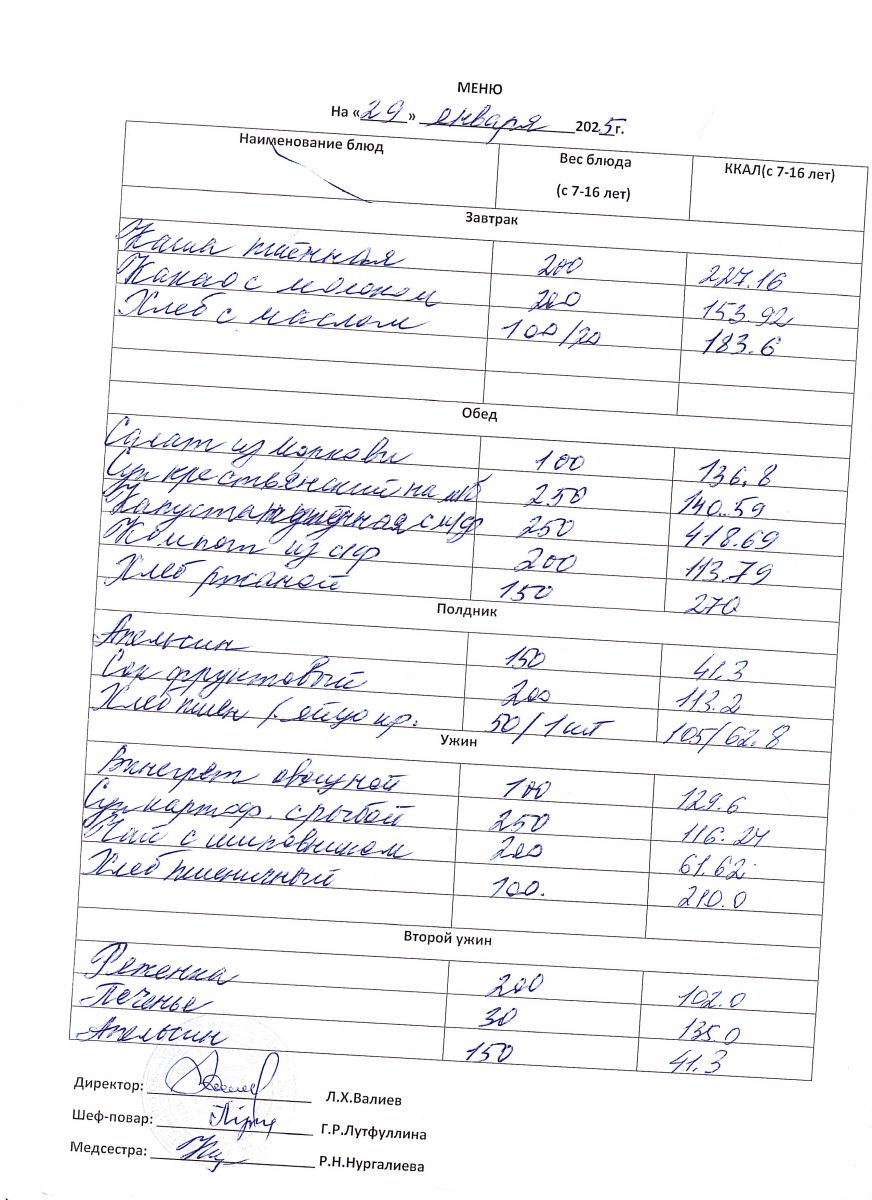 МЕНЮ
На «29» января 2025г.
Наименование блюд Вес блюда (с 7-16 лет) ККАЛ(с 7-16 лет)
Завтрак
Каша пшённая 200 227.16
Какао с молоком 200 153.92
Хлеб с маслом 100/20 183.6
Обед
Салат из моркови 100 136.8
Суп крестьянский на м/б 250 140.59
Капуста тушёная с м/ф 250 418.69
Компот из с/ф 200 113.79
Хлеб ржаной 150 270
Полдник
Апельсин 150 41.3
Сок фруктовый 200 113.2
Хлеб пшен /. яйцо кр. 50/1шт 105/62.8
Ужин
Винегрет овощной 100 129.6
Суп картоф. с рыбой 250 116.24
Чай с шиповником 200 61.62
Хлеб пшеничный 100. 210.0
Второй ужин
Ряженка 200 102.0
Печенье 30 135.0
Апельсин 150 41.3
Директор: Л.Х.Валиев
Шеф-повар: Г.Р.Лутфуллина
Медсестра: Р.Н.Нургалиева